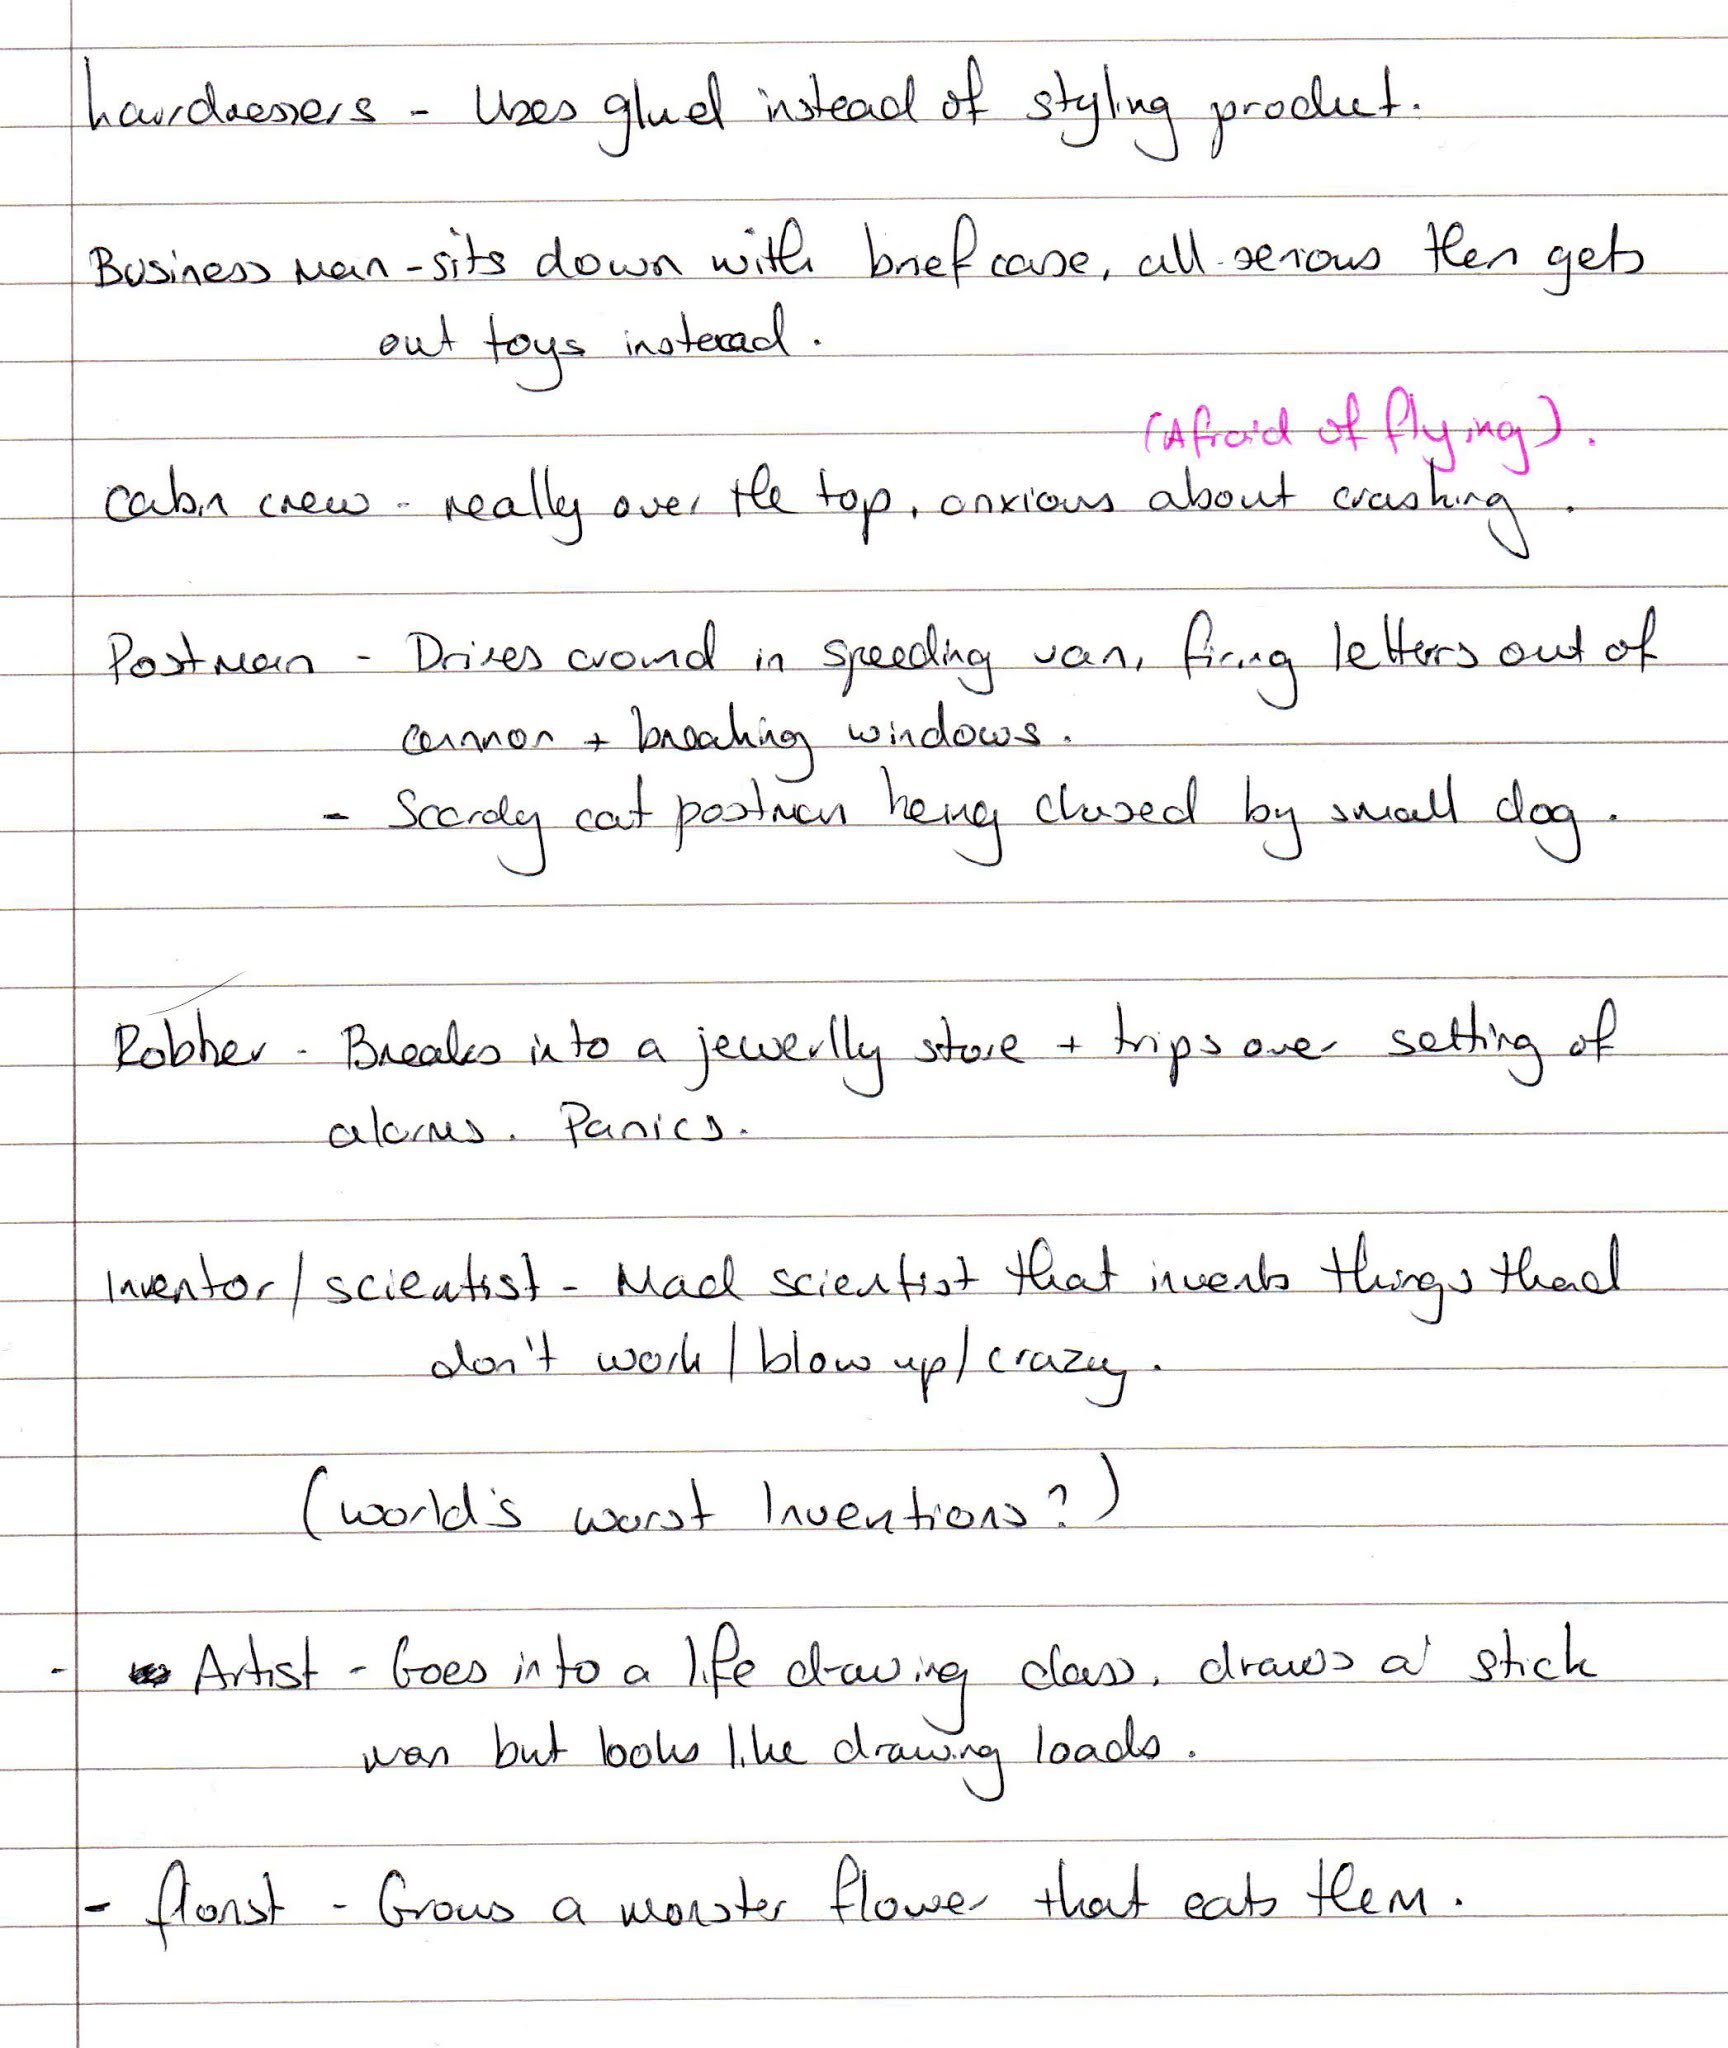 hairdressers - Uses glued instead of styling product.
Business man - sits down with brief case, all serious then gets
out toys instead.
(Afraid of flying).
Cabin crew - really over the top, anxious about crashing.
Postman - Drives around in speeding van, firing letters out of
cannon + breaking windows.
- Scardy cat postman being chased by small dog.
Robber - Breaks into a jewerlly store + trips over setting of
alarms. Panics.
Inventor/scientist - Mad scientist that invents things thad
don't work/blow up/crazy.
(world's worst Inventions?)
- Artist - Goes into a life drawing class, draws a stick
man but looks like drawing loads.
- florist - Grows a monster flower that eats them.